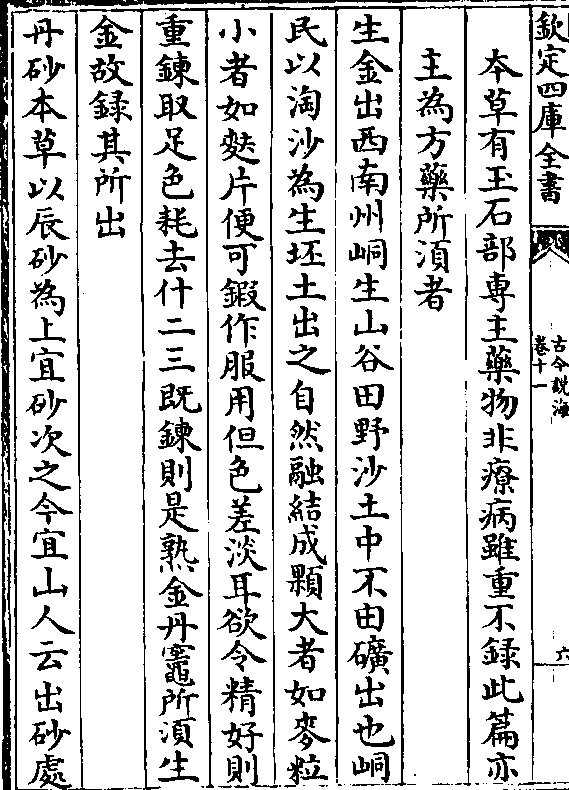 欽定四庫全書
古今說海
卷十一
六
本草有玉石部専主藥物非療病雖重不録此篇亦
主為方藥所湏者
生金出西南州峒生山谷田野沙土中不由礦出也峒
民以淘沙為生坯土出之自然融結成顆大者如麥粒
小者如麩片便可鍜作服用但色差淡耳欲令精好則
重鍊取足色耗去什二三既鍊則是熟金丹竈所湏生
金故録其所出
丹砂本草以辰砂為上宜砂次之今宜山人云出砂處